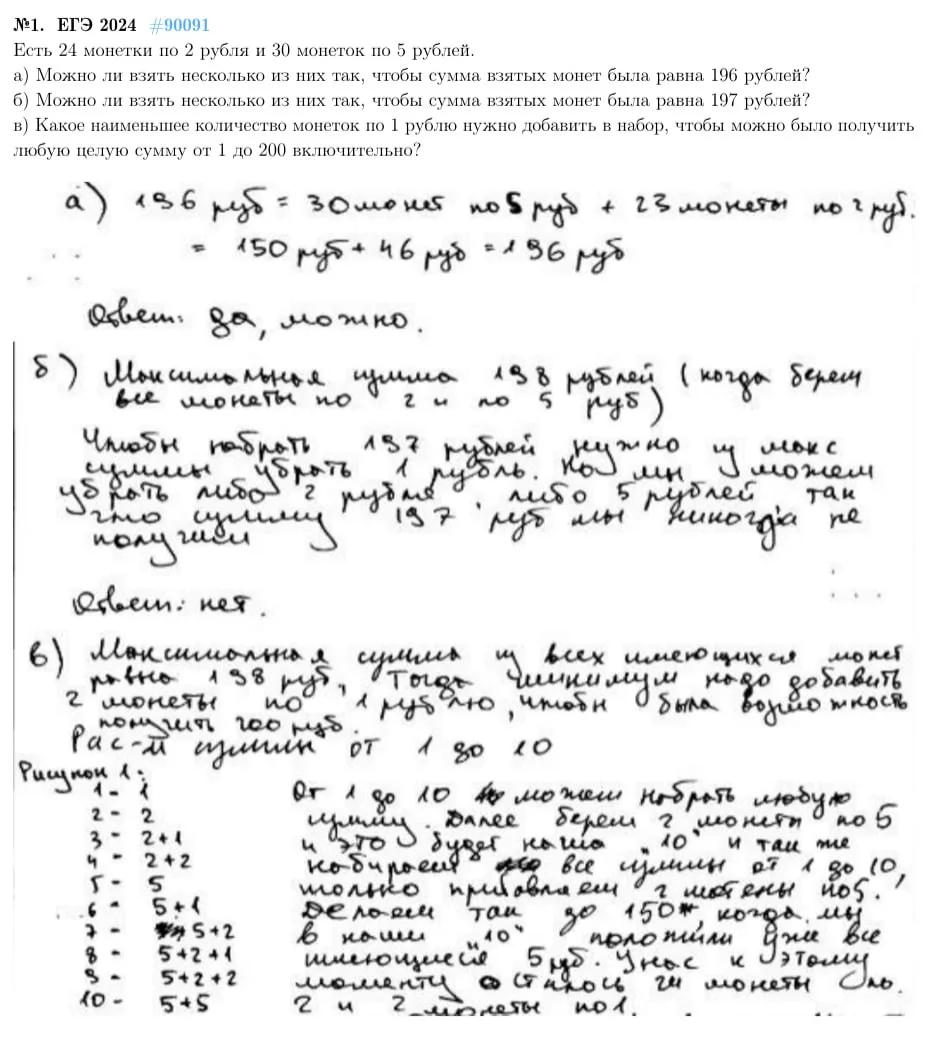 №1. ЕГЭ 2024 #90091
Есть 24 монетки по 2 рубля и 30 монеток по 5 рублей.
а) Можно ли взять несколько из них так, чтобы сумма взятых монет была равна 196 рублей?
б) Можно ли взять несколько из них так, чтобы сумма взятых монет была равна 197 рублей?
в) Какое наименьшее количество монеток по 1 рублю нужно добавить в набор, чтобы можно было получить
любую целую сумму от 1 до 200 включительно?
а) 196 руб = 30 монет по 5 руб + 23 монеты по 2 руб.
= 150 руб + 46 руб = 196 руб
Ответ: да, можно.
б) Максимальная сумма 198 рублей (когда берем
все монеты по 2 и по 5 руб)
Чтобы набрать 197 рублей нужно из макс
суммы убрать 1 рубль. Но мы можем
убрать либо 2 рубля, либо 5 рублей, так
что сумму 197 руб мы никогда не
получим
Ответ: нет.
в) Максимальная сумма из всех имеющихся монет
равна 198 руб, Тогда минимум надо добавить
2 монеты по 1 рублю, чтобы была возможность
получить 200 руб.
Рас-м суммы от 1 до 10
Рисунок 1:
1 - 1
2 - 2
3 - 2+1
4 - 2+2
5 - 5
6 - 5+1
7 - 5+2
8 - 5+2+1
9 - 5+2+2
10 - 5+5
От 1 до 10 можем набрать любую
сумму. Далее берем 2 монеты по 5
и это будет наша „10" и так же
набираем все суммы от 1 до 10,
только прибавляем 2 монеты по 5.
Делаем так до 150, когда мы
в наши „10" положили уже все
имеющиеся 5 руб. У нас к этому
моменту осталось 24 монеты по
2 и 2 монеты по 1.